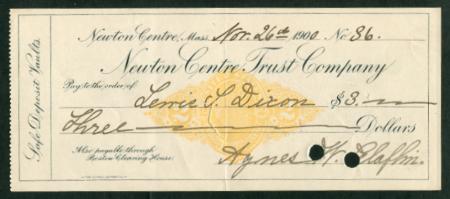 Newton Centre, Mass. Nov. 26th 1900 No 36.
Newton Centre Trust Company
Pay to the order of
Lewis S. Dixon $3.
Three Dollars
Also payable through
Boston Clearing House.
Agnes W. Claflin.
Safe Deposit Vaults.